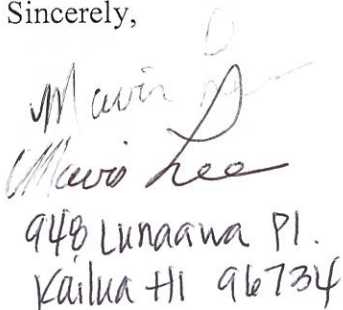 Sincerely,
Mavis Lee
Mavis Lee
948 Lunaawa Pl.
Kailua HI 96734